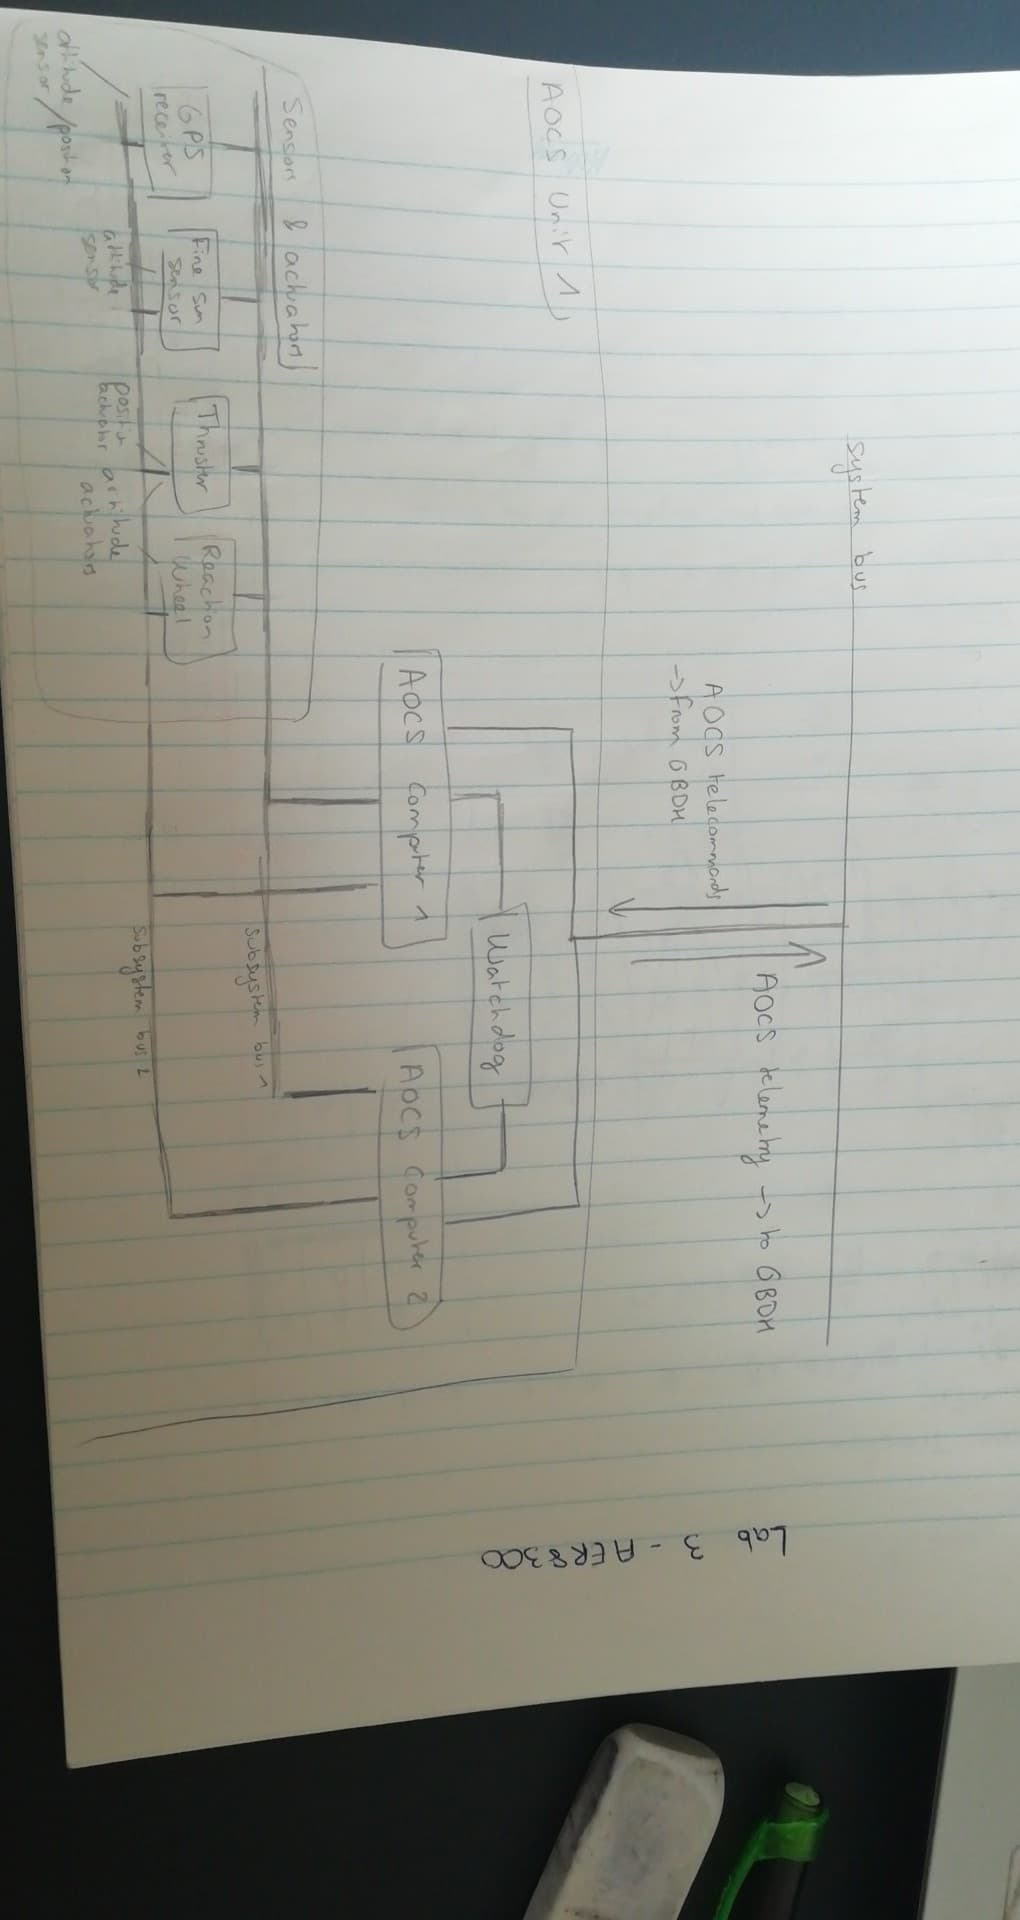 system bus
AOCS telemetry -> to OBDH
AOCS telecommands
-> from OBDH
Lab 3 - AER8300
AOCS Unit 1
Watchdog
AOCS Computer 1
AOCS Computer 2
Sensors & actuators
subsystem bus 1
GPS
receiver
Fine Sun
sensor
Thruster
Reaction
Wheel
subsystem bus 2
attitude
sensor
position
actuator
attitude
actuators
attitude/position
sensor